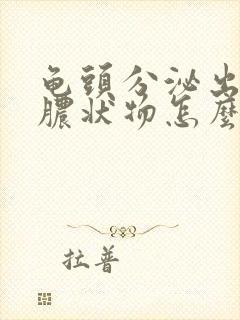 龟頭分泌出
膿状物怎麼
拉普